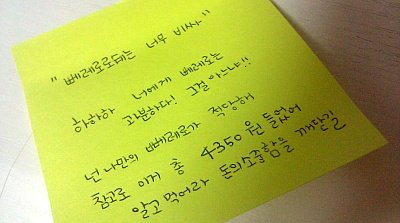 "뻬레로로데는 너무 비싸"
하하하 너에게 베레로는
과분하다! 그걸 아느냐!!
넌 나만의 뻬레로가 적당해
참고로 이거 총 4350원 들었어
알고 먹어라 돈의소중함을 깨닫길